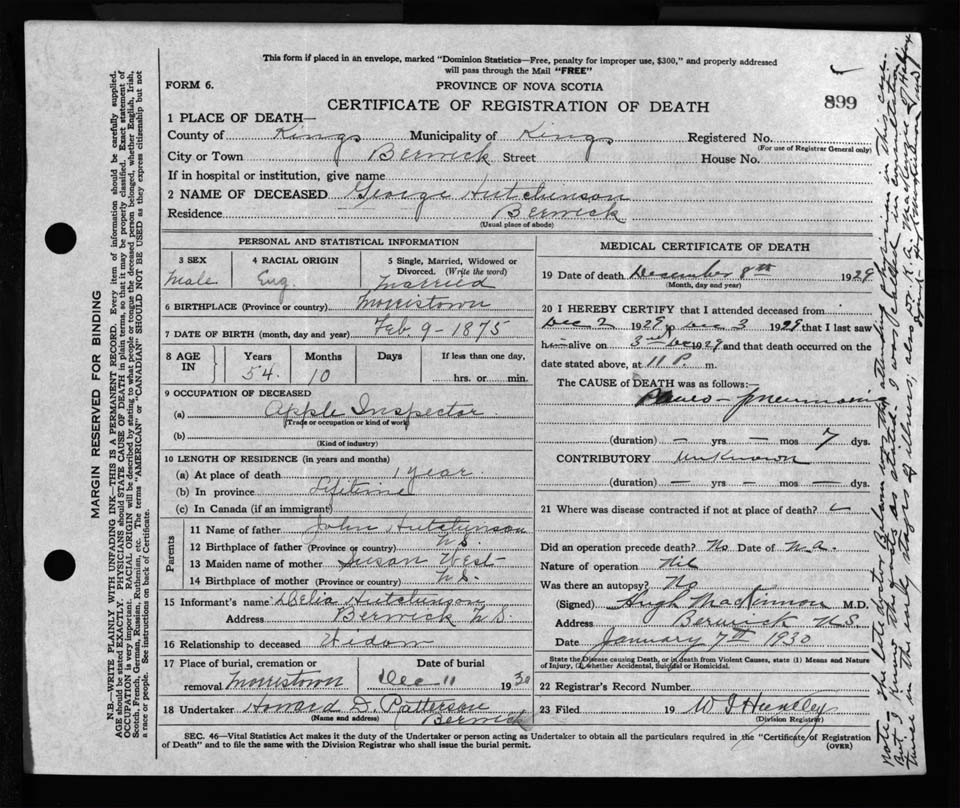 This form if placed in an envelope, marked "Dominion Statistics—Free, penalty for improper use, $300," and properly addressed
will pass through the Mail "FREE"
FORM 6.
PROVINCE OF NOVA SCOTIA
CERTIFICATE OF REGISTRATION OF DEATH
899
1 PLACE OF DEATH—
County of Kings Municipality of Kings Registered No.
(For use of Registrar General only)
City or Town Berwick Street House No.
If in hospital or institution, give name
2 NAME OF DECEASED George Hutchinson
Residence Berwick
(Usual place of abode)
PERSONAL AND STATISTICAL INFORMATION
3 SEX 4 RACIAL ORIGIN 5 Single, Married, Widowed or
Divorced. (Write the word)
Male Eng. Married
6 BIRTHPLACE (Province or country) Morristown
7 DATE OF BIRTH (month, day and year) Feb. 9 - 1875
8 AGE IN Years Months Days If less than one day,
54. 10 hrs. or min.
9 OCCUPATION OF DECEASED
(a) Apple Inspector
(Trade or occupation or kind of work)
(b)
(Kind of industry)
10 LENGTH OF RESIDENCE (in years and months)
(a) At place of death 1 year
(b) In province Lifetime
(c) In Canada (if an immigrant)
Parents
11 Name of father John Hutchinson
12 Birthplace of father (Province or country) N.S.
13 Maiden name of mother Susan West
14 Birthplace of mother (Province or country) N.S.
15 Informant's name Delia Hutchinson
Address Berwick N.S.
16 Relationship to deceased Widow
17 Place of burial, cremation or Date of burial
removal Morristown Dec 11 1930
18 Undertaker Howard D. Patterson
(Name and address) Berwick
MEDICAL CERTIFICATE OF DEATH
19 Date of death December 8th 1929
(Month, day and year)
20 I HEREBY CERTIFY that I attended deceased from
Dec 2 1929 to Dec 3 1929 that I last saw
him alive on 3rd Dec 1929 and that death occurred on the
date stated above, at 11 P. m.
The CAUSE of DEATH was as follows:
Pleuro-pneumonia
(duration) — yrs — mos 7 dys.
CONTRIBUTORY unknown
(duration) — yrs — mos — dys.
21 Where was disease contracted if not at place of death?
Did an operation precede death? No Date of N.A.
Nature of operation Nil
Was there an autopsy? No
(Signed) Hugh MacKinnon M.D.
Address Berwick N.S.
Date January 7th 1930
State the Disease causing Death, or in death from Violent Causes, state (1) Means and Nature
of Injury, (2) whether Accidental, Suicidal or Homicidal.
22 Registrar's Record Number
23 Filed 19 W J Huntley
(Division Registrar)
SEC. 46—Vital Statistics Act makes it the duty of the Undertaker or person acting as Undertaker to obtain all the particulars required in the "Certificate of Registration
of Death" and to file the same with the Division Registrar who shall issue the burial permit. (OVER)
MARGIN RESERVED FOR BINDING
N.B.—WRITE PLAINLY WITH UNFADING INK—THIS IS A PERMANENT RECORD. Every item of information should be carefully supplied.
AGE should be stated EXACTLY. PHYSICIANS should STATE CAUSE OF DEATH in plain terms, so that it may be properly classified. Exact statement of
OCCUPATION is very important. RACIAL ORIGIN will be described by stating to what people or tongue the deceased person belonged, whether English, Irish,
Scotch, French, German, Russian, Ruthenian, etc. The terms "AMERICAN" or "CANADIAN" SHOULD NOT BE USED as they express citizenship but not
a race or people. See instructions on back of Certificate.
Note:- The late doctor Balcom was the attending Physician in this case
But I know the facts as stated. I was called in consultation
twice in the early stages of illness, also Dr. K. A. MacKenzie of Halifax